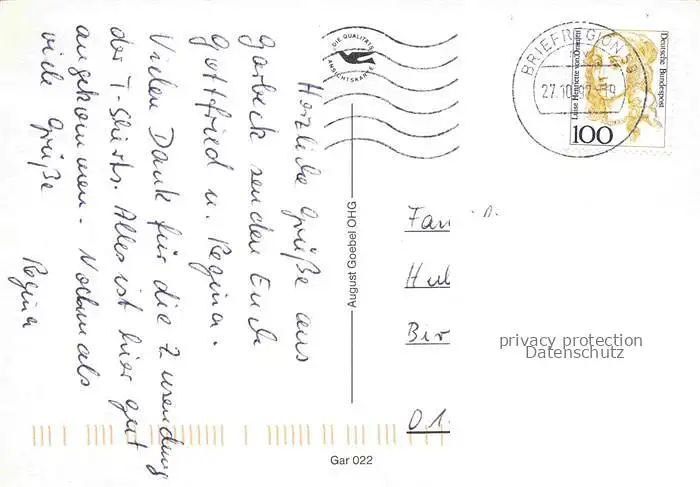 Herzliche Grüße aus
Garbeck senden Euch
Gottfried u. Regina.
Vielen Dank für die Zusendung
der T-Shirts. Alles ist hier gut
angekommen. Nochmals
viele Grüße
Regina
DIE QUALITÄTS
ANSICHTSKARTE
August Goebel OHG
Gar 022
BRIEFREGION 59
27.10.97-19
Deutsche Bundespost
Luise Henriette von Oranien
100
Fam
Hul
Bir
privacy protection
Datenschutz